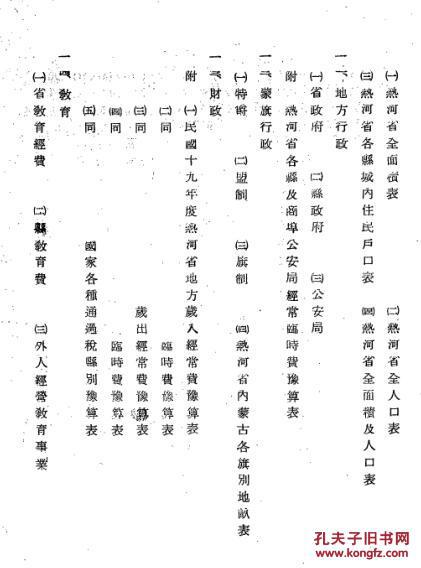 ㈠熱河省全面積表　㈡熱河省全人口表
㈢熱河省各縣城內住民戶口表　㈣熱河省全面積及人口表
一一、地方行政
㈠省政府　㈡縣政府　㈢公安局
附　熱河省各縣及商埠公安局經常臨時費豫算表
一二、蒙旗行政
㈠特爵　㈡盟制　㈢旗制　㈣熱河省內蒙古各旗別地畝表
一三、財政
附　㈠民國十九年度熱河省地方歲入經常費豫算表
㈡同　臨時費豫算表
㈢同　歲出經常費豫算表
㈣同　臨時費豫算表
㈤同　國家各種通過稅縣別豫算表
一四、敎育
㈠省敎育經費　㈡縣敎育費　㈢外人經營敎育事業
孔夫子旧书网
www.kongfz.com